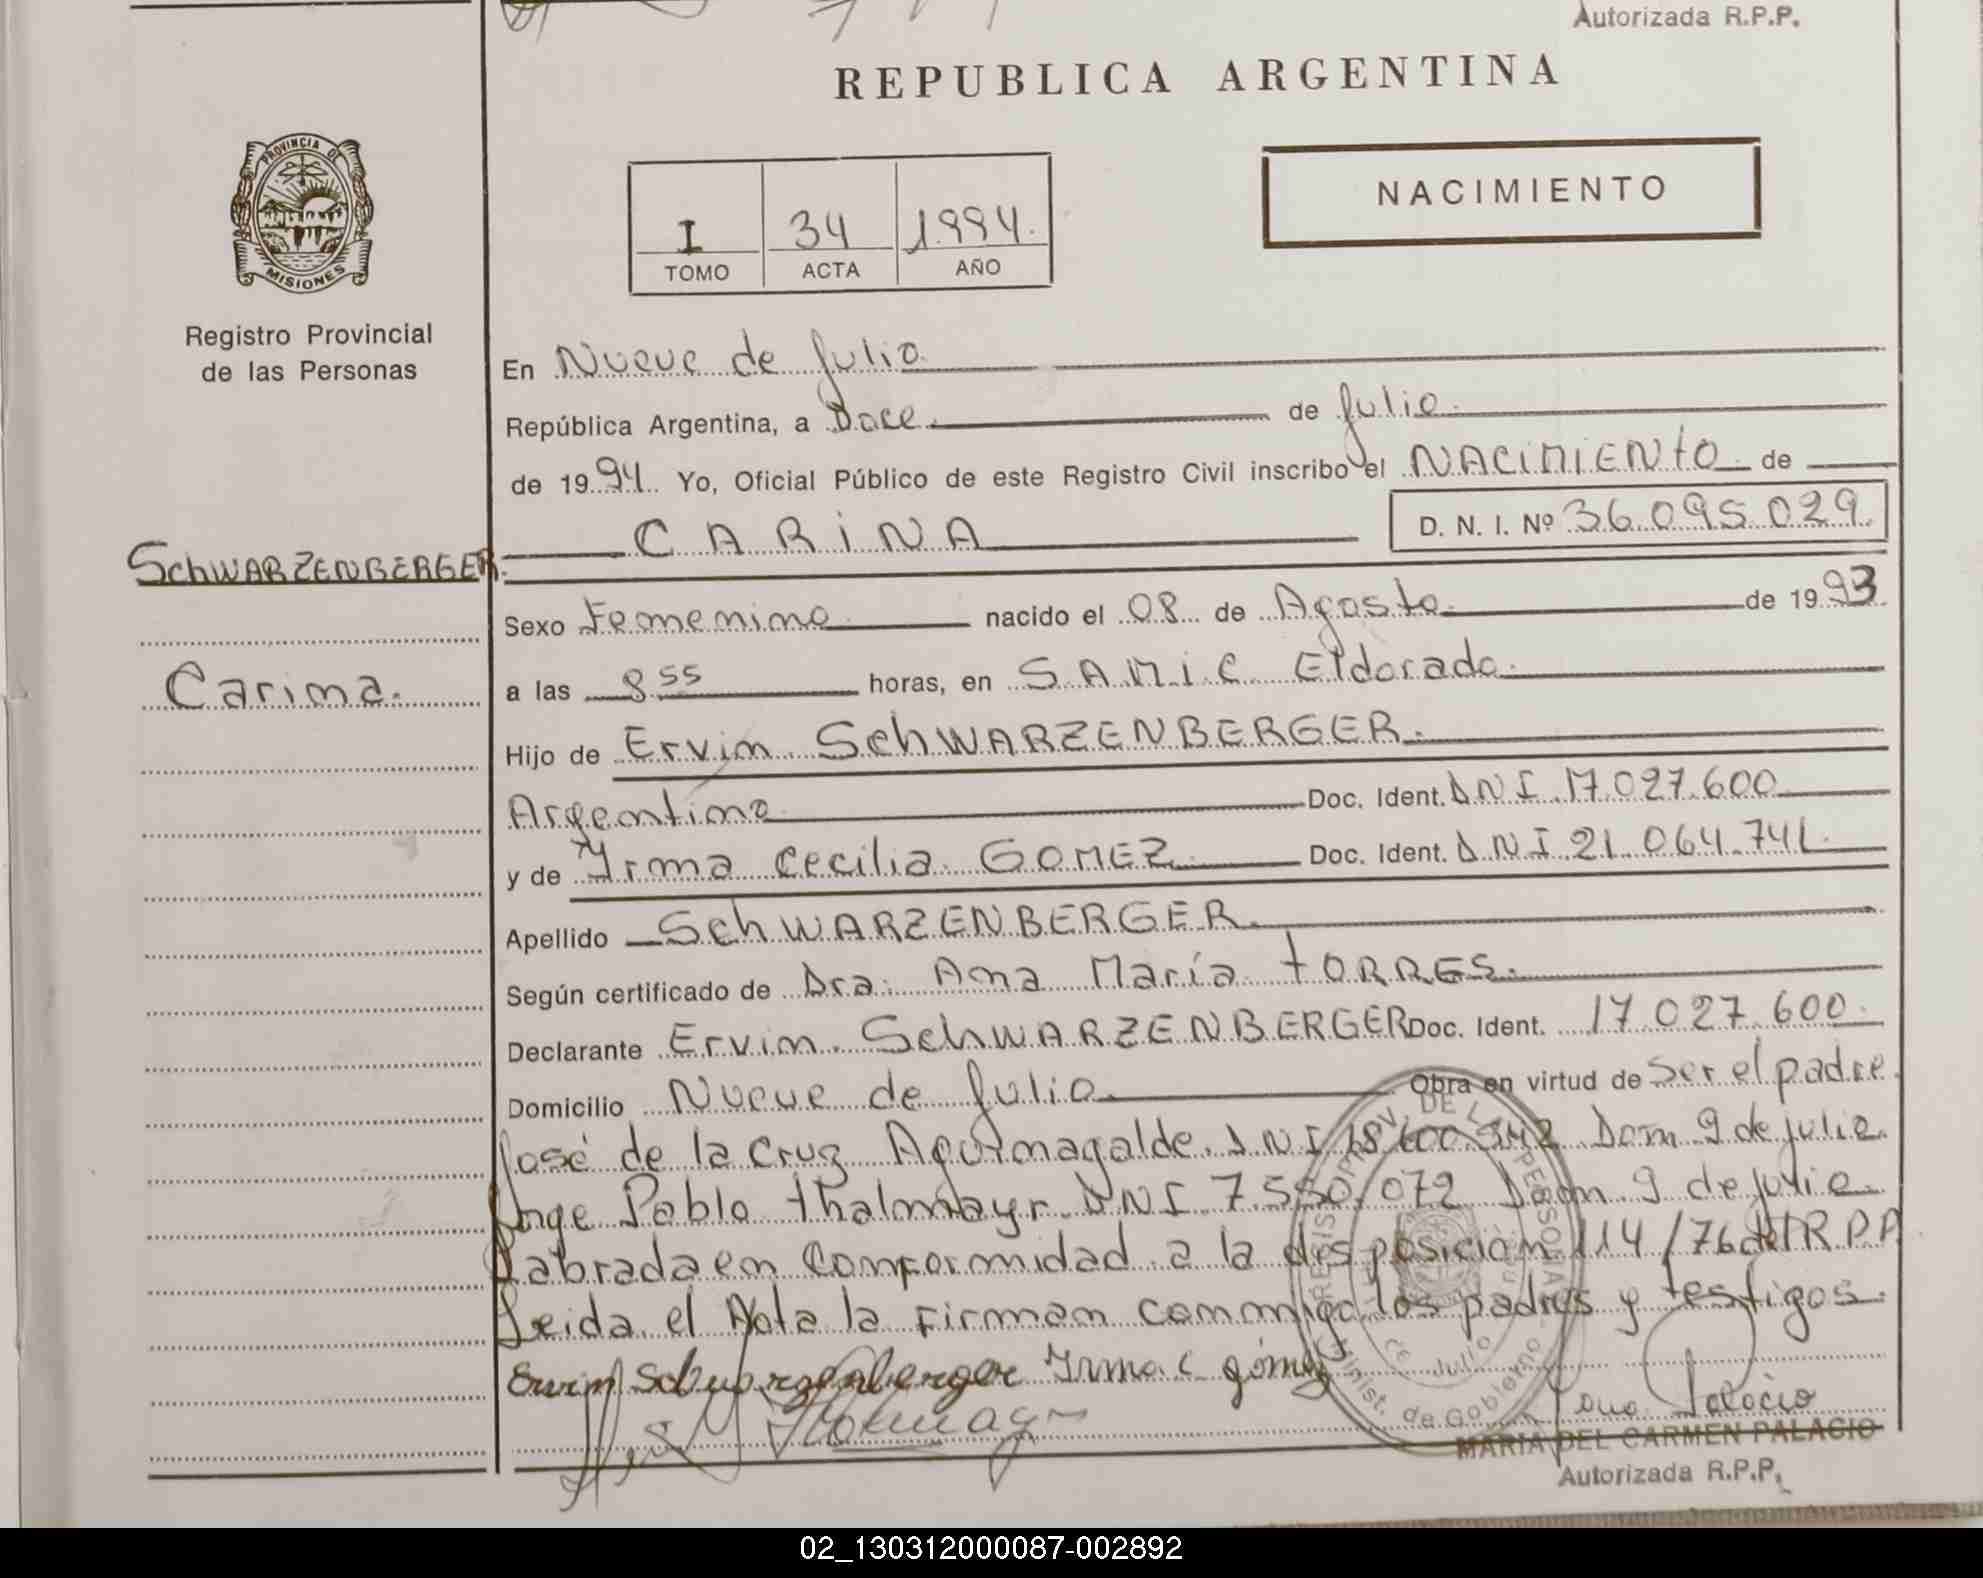 Autorizada R.P.P.
REPUBLICA ARGENTINA
PROVINCIA DE
MISIONES
Registro Provincial
de las Personas
NACIMIENTO
I 34 1.994.
TOMO ACTA AÑO
En Nueve de Julio
República Argentina, a Doce de Julio.
de 1994. Yo, Oficial Público de este Registro Civil inscribo el NACIMIENTO de
CARINA D. N. I. Nº 36.095.029.
SchWARZENBERGER.
Sexo Femenino nacido el 08 de Agosto de 1993
Carina.
a las 8 55 horas, en SAMIC Eldorado.
Hijo de Ervin SchWARZENBERGER.
Argentino Doc. Ident. DNI 17.027.600
y de Yrma Cecilia GOMEZ Doc. Ident. DNI 21.064.741.
Apellido SchWARZENBERGER.
Según certificado de Dra. Ana María TORRES.
Declarante Ervin SchWARZENBERGER Doc. Ident. 17.027.600.
Domicilio Nueve de Julio Obra en virtud de Ser el padre.
José de la Cruz DNI Dom 9 de julio.
Jorge Pablo Thalmayr DNI 7.550.072 Dom. 9 de julio.
Labrada en Conformidad a la disposición 114/76 del R.P.P
Leida el Acta la Firman conmigo los padres y testigos.
Ervin Schwarzenberger Yrma C gómez
MARIA DEL CARMEN PALACIO
Autorizada R.P.P.
02_130312000087-002892